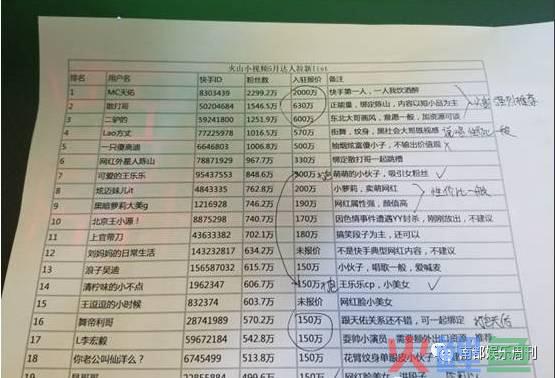 火山小视频5月达人拉新list
排名 用户名 快手ID 粉丝数 入驻报价 备注
1 MC天佑 8303439 2299.2万 2000万 快手第一人，一人我饮酒醉
2 散打哥 50204684 1546.5万 630万 正能量，绑定陈山，内容以短小品为主
3 二驴的 59241800 1251.9万 600万 东北大哥画风，意愿一般，加资源可谈
4 Lao方丈 77225978 1016.5万 570万 街舞，纹身，黑社会大哥既视感
5 一只傻高迪 6646803 1006.8万 500万 抽烟炫富傻小子，不输出价值观
6 网红外星人陈山 78871929 967.7万 330万 绑定散打哥一起跳槽
7 可爱的王乐乐 95437553 787.5万 300万 萌萌的小伙子，吸引女粉丝
8 炫迈妹儿't 4843335 762.8万 200万 小萝莉，卖萌网红
9 黑暗萝莉大美g 1216928 746.2万 190万 网红属性强，颜值高
性价比一般
10 北京王小源！ 8875298 740.7万 170万 因色情事件遭遇YY封杀，刚刚放出，不建议
11 上官带刀 43633382 711.1万 180万 搞笑段子为主，还可以
12 刘妈妈的日常生活 143232817 634.2万 未报价 不是快手典型网红内容，不建议
13 浪子吴迪 156587032 615.7万 150万 小伙子，唱歌一般，爱喊麦
14 清柠味的小不点 1962347 606.7万 150万 王乐乐cp，小美女
15 王逗逗的小时候 832374 603.7万 未报价 网红脸小美女
16 舞帝利哥 28741989 570.2万 150万 跟天佑关系还不错，可一起绑定
17 L李宏毅 59672184 542.8万 150万 耍帅小演员，需要额外出口资源，推荐
18 你老公叫仙洋么？ 6745499 513.8万 150万 花臂纹身单眼皮小伙子
南都娱乐周刊